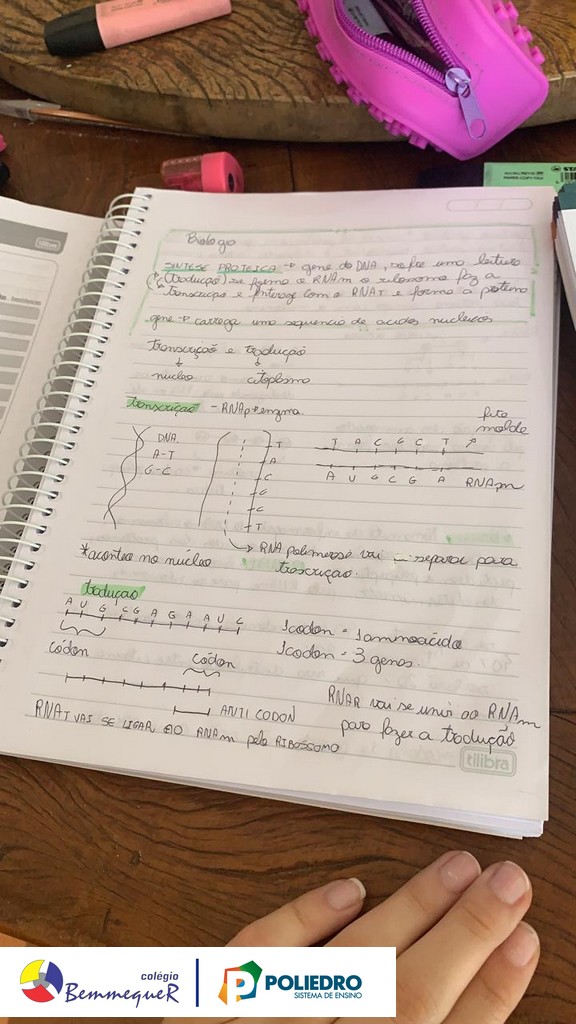 Biologia
SINTESE PROTEICA → gene do DNA, sofre uma leitura
(tradução) se forma o RNAm o ribossomo faz a
transcrição e interage com o RNAT e forma a proteina
gene → carrega uma sequencia de acidos nucleicos
transcrição e tradução
nucleo citoplasma
transcrição - RNAp → enzima
fita
molde
DNA
A-T
G-C
T
A
C
G
C
T
T A C G C T
A U G C G A RNAm
RNA polimerase vai separar para
trascrição.
*acontece no núcleo
tradução
A U G C G A G A A U C
códon
códon
1codon = 1aminoácido
1codon = 3 genes.
ANTICODON
RNAT VAI SE LIGAR AO RNAm pelo RIBOSSOMO
RNAR vai se unir ao RNAm
para fazer a tradução
tilibra
tilibra
colégio
BemmequeR
POLIEDRO
SISTEMA DE ENSINO